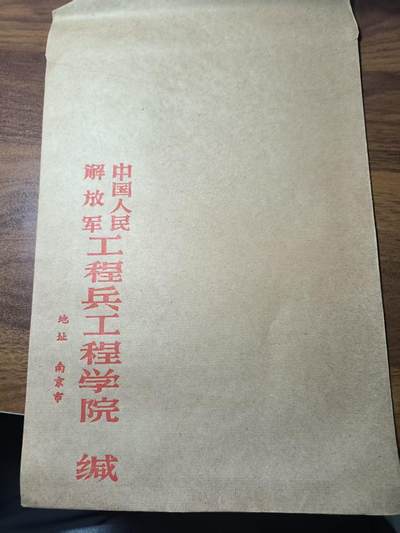 中国人民
解放军
工程兵工程学院 缄
地址 南京市